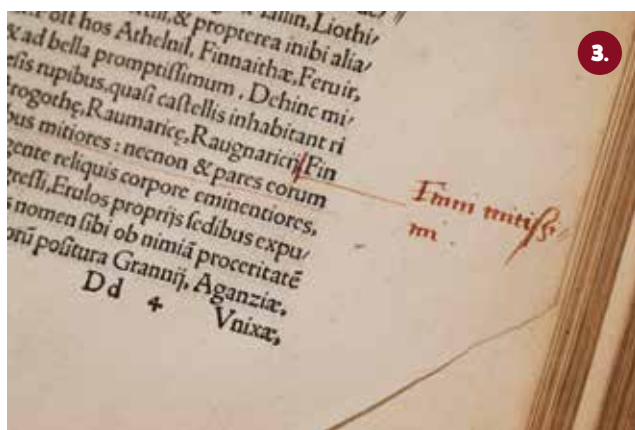 Liothi⸗
nt, & propterea inibi alia⸗
hos Athelnil, Finnaithæ, Feruir,
ad bella promptissimum. Dehinc mi⸗
rupibus, quasi castellis inhabitant ri
rogothę, Raumaricę, Raugnaricij, Fin
bus mitiores : necnon & pares eorum
gente reliquis corpore eminentiores,
gressi, Erulos proprijs sedibus expu⸗
s nomen sibi ob nimiā proceritatē
orū positura Grannij, Aganziæ,
Dd 4 Vnixæ,
Finni mitissi⸗
mi
3.